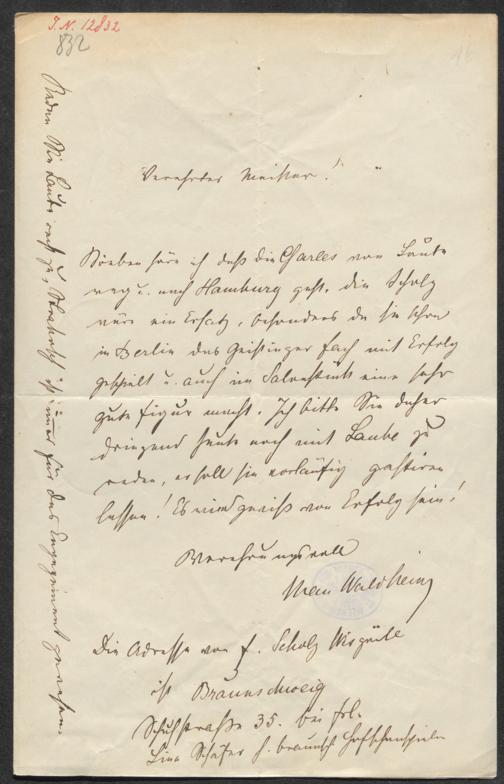 J.N. 12832
832
Verehrter Meister!
Soeben höre ich daß die Charles von Laube
weg u. nach Hamburg geht, die Scholz
wäre ein Ersatz, besonders da sie schon
in Berlin das Geistinger Fach mit Erfolg
gespielt u. auch im Salonstück eine sehr
gute Figur macht. Ich bitte Sie daher
dringend heute noch mit Laube zu
reden, er soll sie vorläufig gastiren
lassen! Es wird gewiß von Erfolg sein!
Verehrungsvoll
Waldheim
Die Adresse von F. Scholz
ist Braunschweig
Schulstraße 35. bei Frl.
Lina Schäfer h. braunsch Hofschauspielerin
Reden Sie Laube recht zu, Strakosch ist immer für das Engagement gewesen.